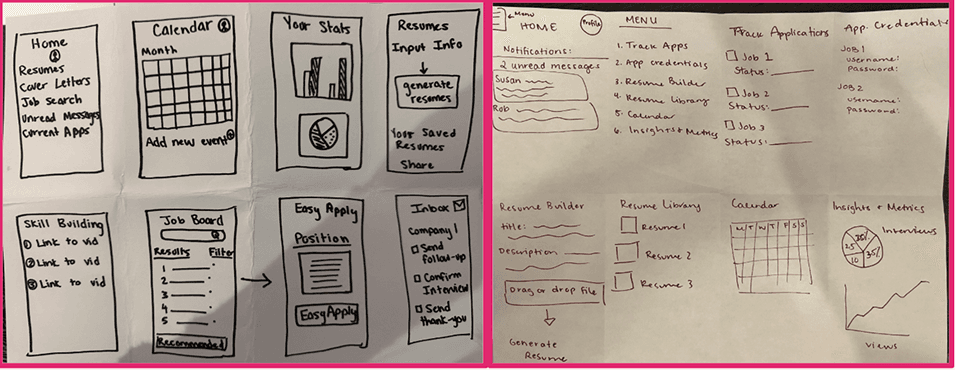 Home
Resumes
Cover Letters
Job Search
Unread Messages
Current Apps
Calendar
Month
Add new event
Your Stats
Resumes
Input Info
generate
resumes
Your Saved
Resumes
Share
Skill Building
1 Link to vid
2 Link to vid
3 Link to vid
Job Board
Results Filter
1
2
3
4
5
Recommended
Easy Apply
Position
Easy Apply
Inbox
Company 1
Send
follow-up
Confirm
Interview
Send
thank-you
Menu
HOME
Profile
Notifications:
2 unread messages
Susan
Rob
MENU
1. Track Apps
2. App credentials
3. Resume Builder
4. Resume Library
5. Calendar
6. Insights + Metrics
Track Applications
Job 1
Status:
Job 2
Status:
Job 3
Status:
App. Credentials
JOB 1
username:
password:
JOB 2
username:
password:
Resume Builder
title:
Description
Drag or drop file
Generate
Resume
Resume Library
Resume 1
Resume 2
Resume 3
Calendar
M T W T F S S
Insights + Metrics
Interviews
35%
25
10
35%
views